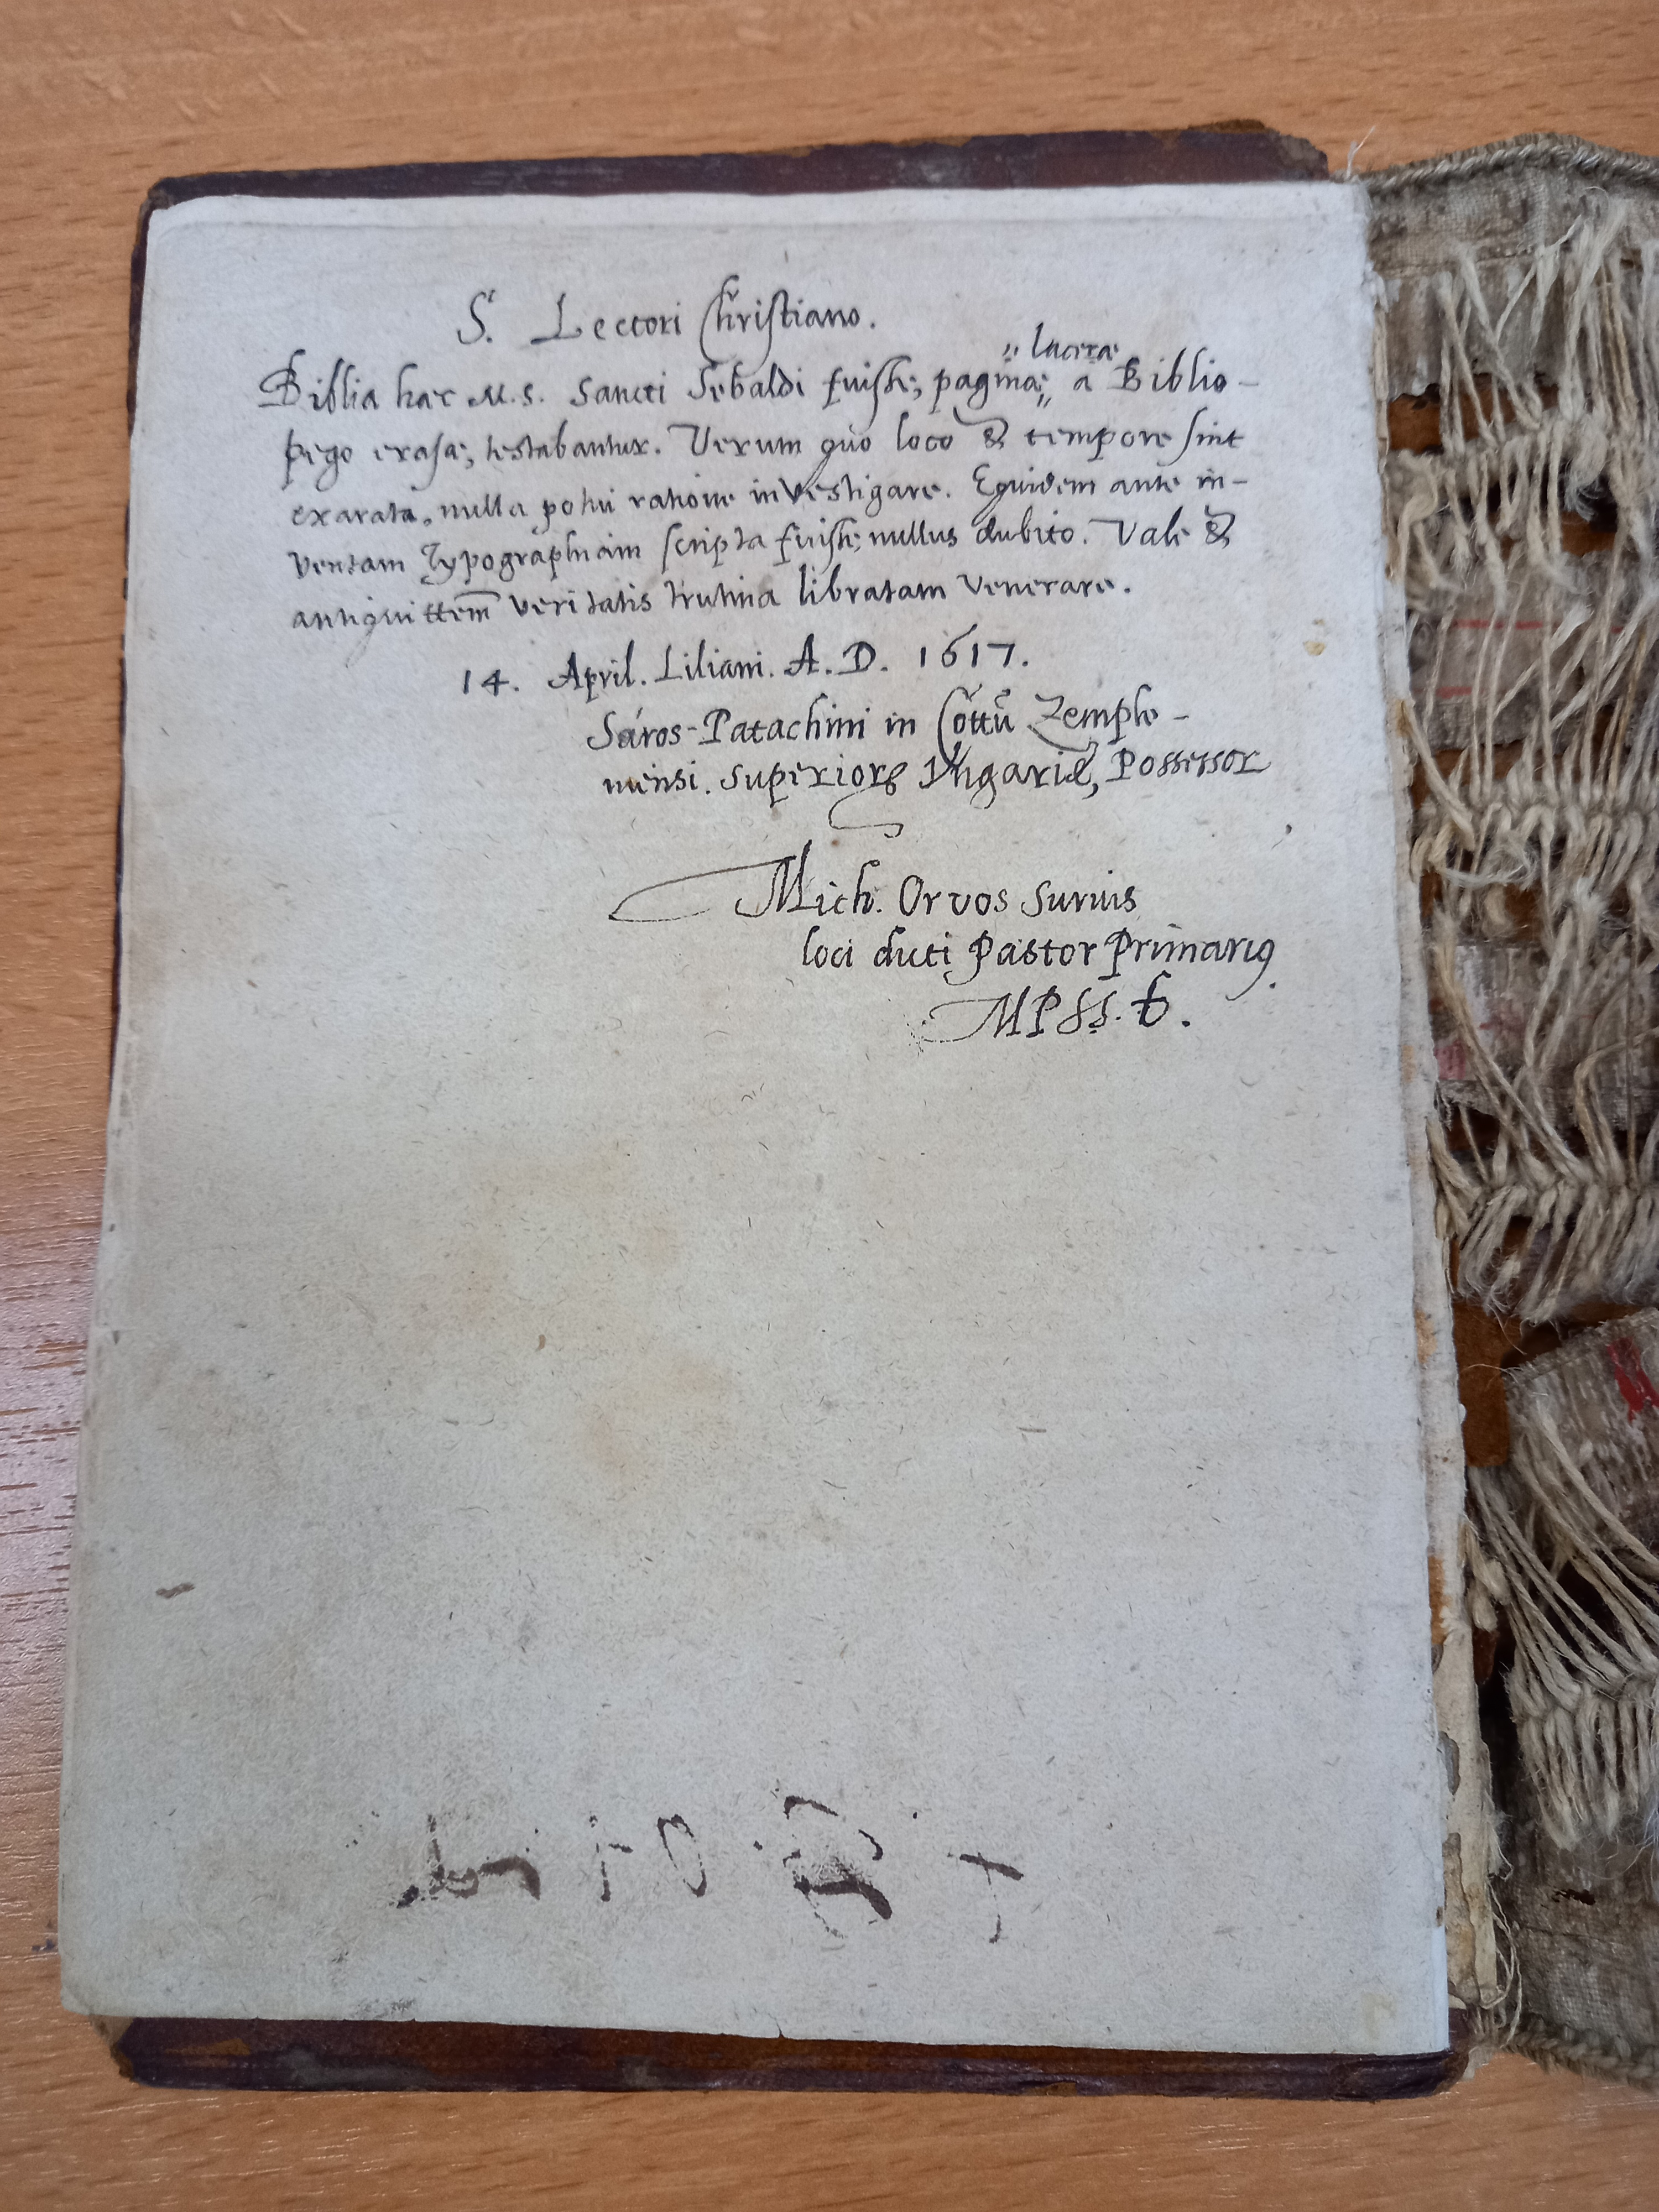 S. Lectori Christiano.
„ lucera
Biblia haec M.S. Sancti Sebaldi fuisse; paginae „ a Biblio-
pego erasae; testabantur. Verum quo loco & tempore sint
exarata, nulla potui ratione investigare. Equidem ante in-
ventam Typographiam scripta fuisse; nullus dubito. Vale &
antiquittem̄ veritatis trutina libratam venerare.
14. April. Liliani. A. D. 1617.
Sáros-Patachini in Cottū Zemple-
niensi. superioris Vngariae, Possessor
Mich. Orvos Surius
loci dicti Pastor Primarius.
MPSS.